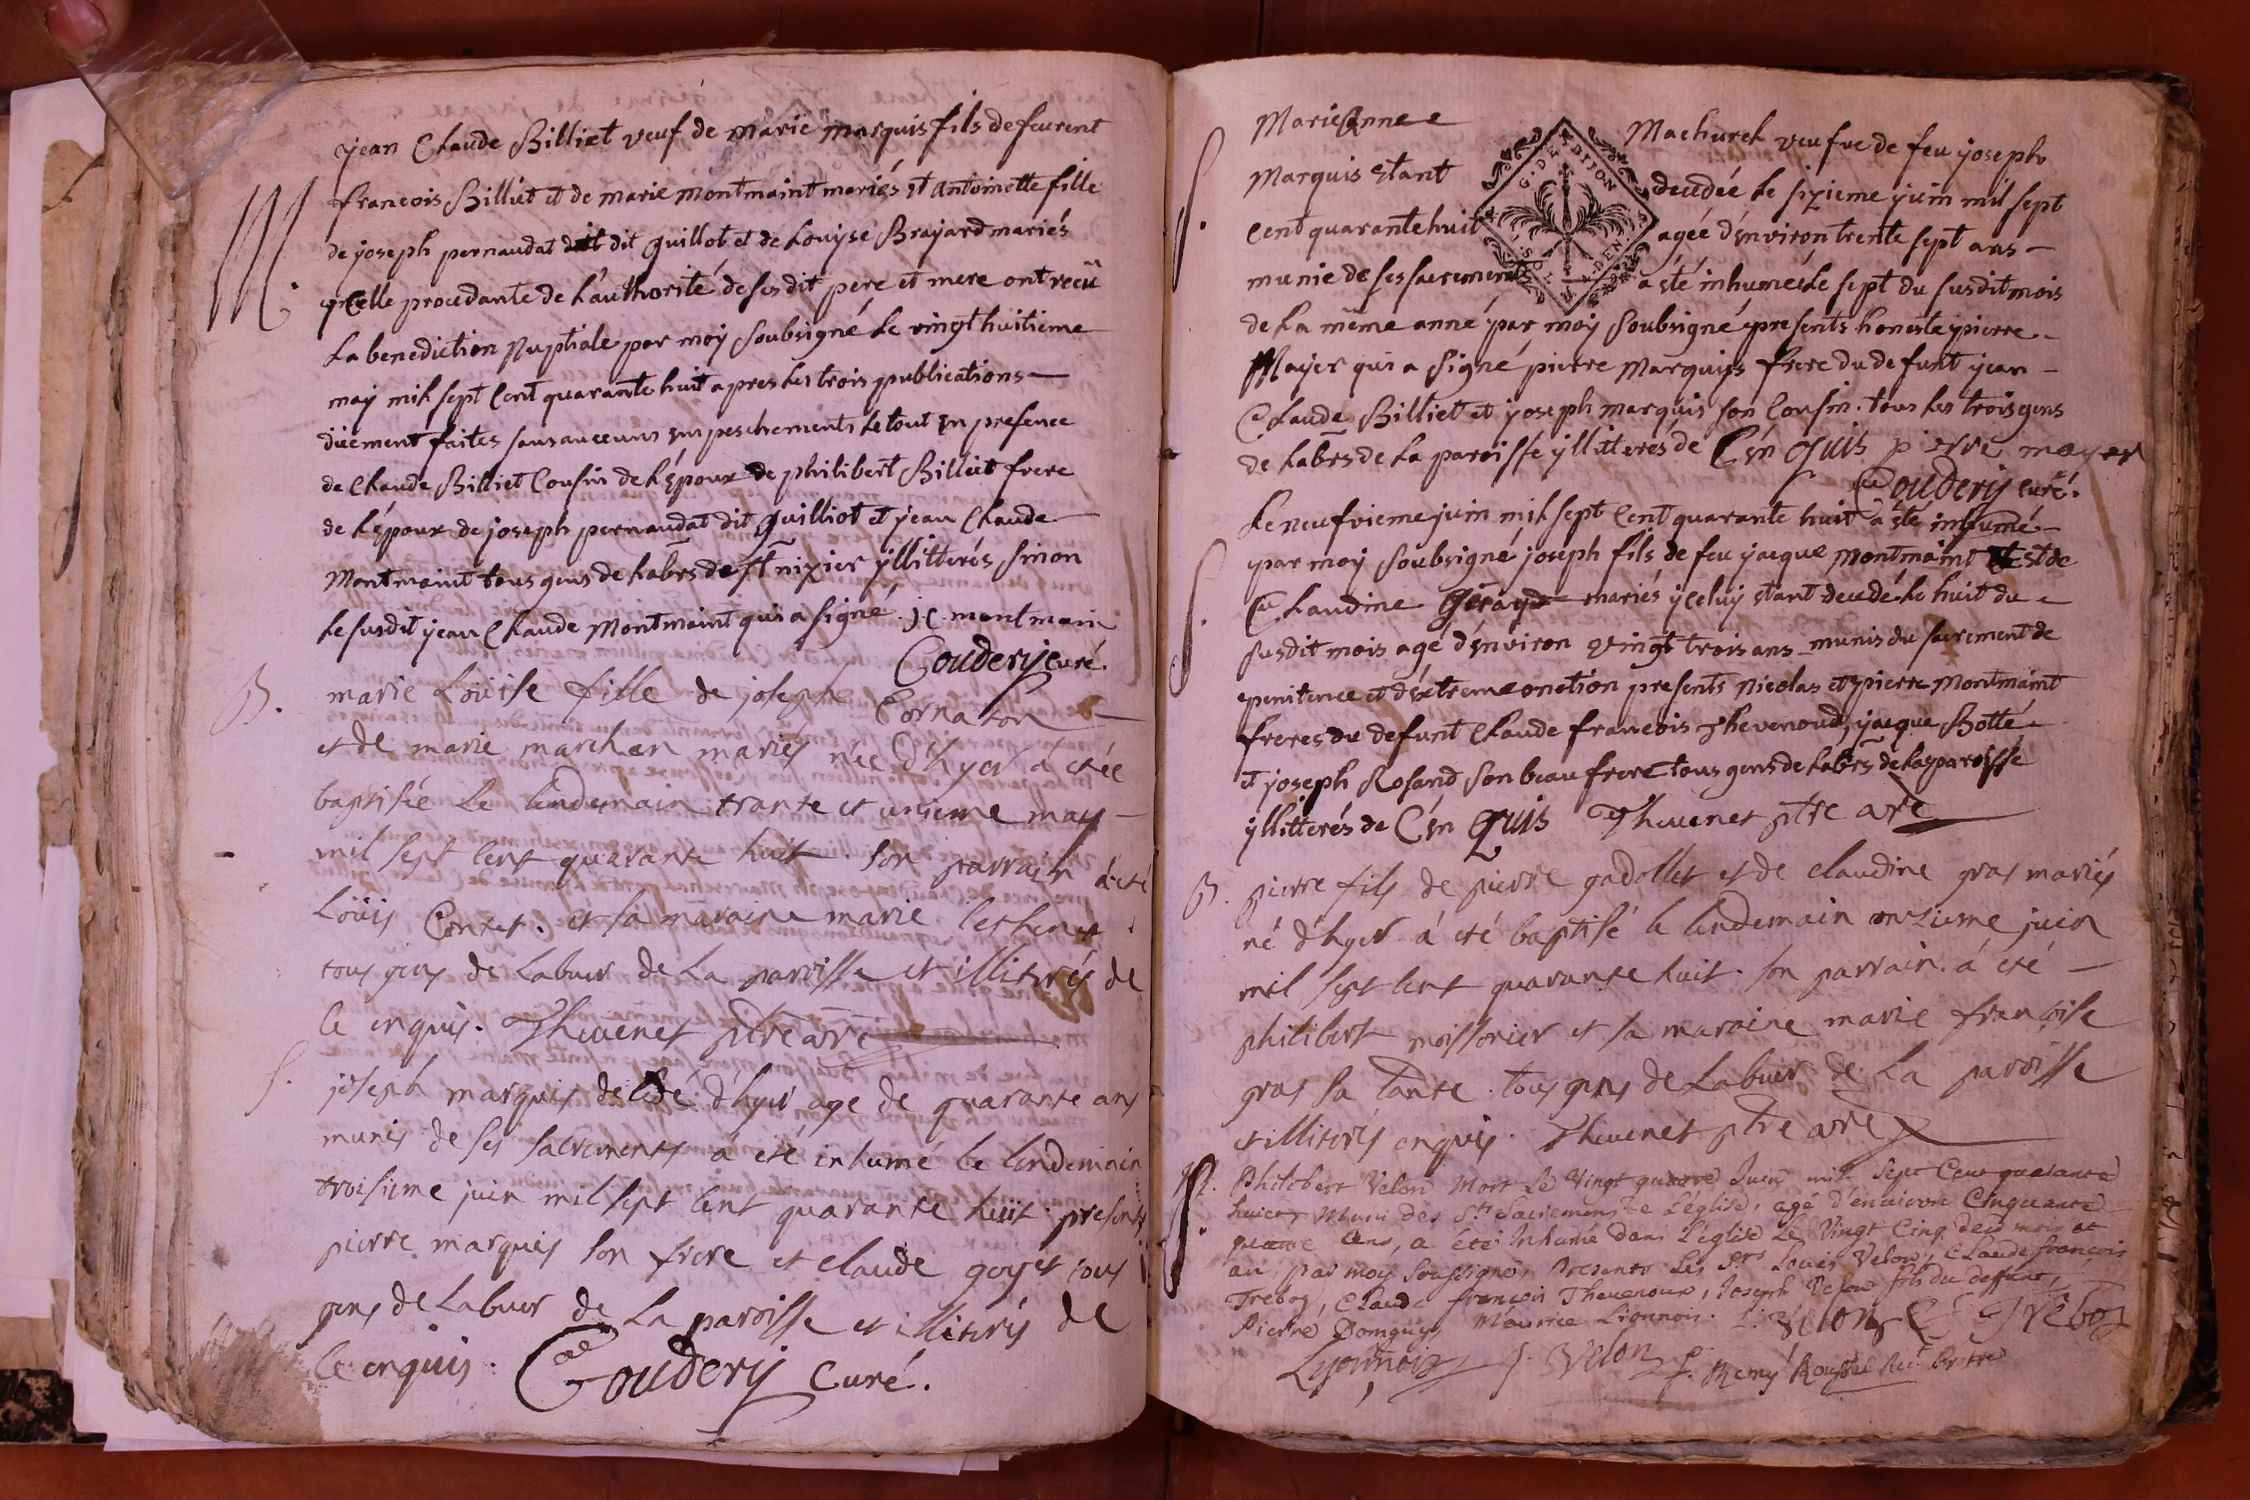 jean Claude Billiet veuf de marie marquis fils de feu rent
M. francois Billiet et de marie montmaint mariés et antoinette fille
de joseph pernaudat dit guillot et de Louyse Brajard mariés
ycelle procedante de l'authorité de ses dit pere et mere ont recü
la benediction nuptiale par moy soubsigné le vingt huitieme
may mil sept cent quarante huit apres les trois publications
düement faites sans aucuns empeschements le tout en presence
de Claude Billiet cousin de l'époux de philibert Billiet frere
de l'époux de joseph pernaudat dit guilliot et jean Claude
Montmaint tous gens de labrs de st nizier yllitterés sinon
le susdit jean Claude Montmaint qui a signé. jc montmain
Coudery curé.
B. marie Loüise fille de joseph Cornaton
et de marie marchan mariés née d'hyer a etée
baptisée le lendemain trante et unieme may
mil sept cent quarante huit. son parrain a eté
Loüis Contet. et sa maraine marie
tous gens de labeur de la paroisse et illiterés de
ce enquis. Thevenet ptre
S. joseph marquis décédé d'hyer age de quarante ans
munis de ses sacrements a eté inhumé le lendemain
troisieme juin mil sept cent quarante huit. presents
pierre marquis son frere et claude goyet tous
gens de labeur de la paroisse et illiterés de
ce enquis. Coudery curé.
S. Marie anne Machurek veufve de feu joseph
Marquis etant decedée le sizieme juin mil sept
cent quarante huit agéé d'environ trente sept ans
munie de ses sacrements a été inhumée le sept du susdit mois
de la même anné par moy soubsigné presents honeste pierre
Mayer qui a signé, pierre marquis frere du defunt jean
Claude Billiet et joseph marquis son cousin. tous les trois gens
de labrs de la paroisse yllitterés de C'en quis pierre mayer
Coudery curé.
S. Le neufvieme juin mil sept cent quarante huit a été inhumé
par moy soubsigné joseph fils de feu jacque montmaint et de
Claudine mariés yceluy etant decedé le huit du
susdit mois agé d'environ vingt trois ans munis du sacrement de
penitence et d'extreme onction presents Nicolas et pierre Montmaint
freres du defunt Claude francois Thevenoud, jacque Botté
et joseph Rosand son beau frere tous gens de labrs de la paroisse
yllitterés de C'en quis Thevenet ptre
B. pierre fils de pierre gadollet et de claudine gras mariés
né d'hyer a eté baptisé le lendemain onzieme juin
mil sept cent quarante huit. son parrain. a eté
philibert moissonier et sa maraine marie francoise
gras sa tante. tous gens de labeur de la paroisse
et illiterés enquis. Thevenet ptre
S. Philibert Velon Mort Le Vingt quatre Juin mil Sept Cent quarante
huict, Muni des Sts Sacremens de L'église, agé d'environ Cinquante
quatre ans, a été Inhumé dans L'église Le Vingt Cinq des mois et
an par moy Soussigné, Presents Les Srs Louis Velon, Claude francois
Treboz, Claude francois Thevenoux, Joseph Velon fils du deffunt,
Pierre Domguy, Maurice Lionnois. Velon C f Trèboz
Lyonnois J. Velon f. Remy Roussel Prêtre
G. DE DIJON